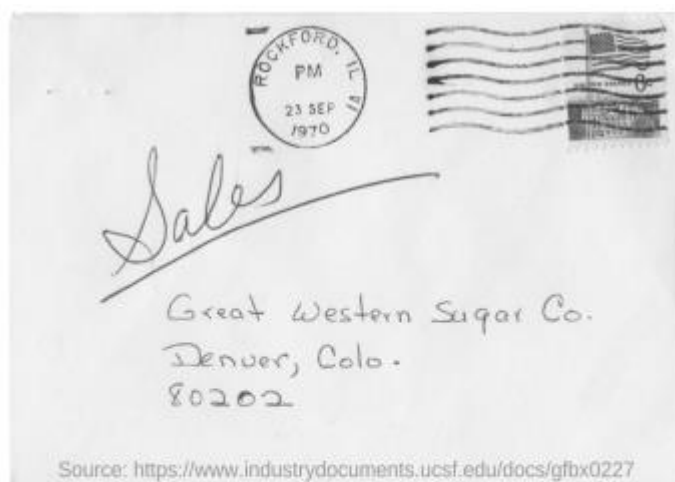 ROCKFORD, IL
PM
23 SEP
1970
Sales
Great Western Sugar Co.
Denver, Colo.
80202
Source: https://www.industrydocuments.ucsf.edu/docs/gfbx0227